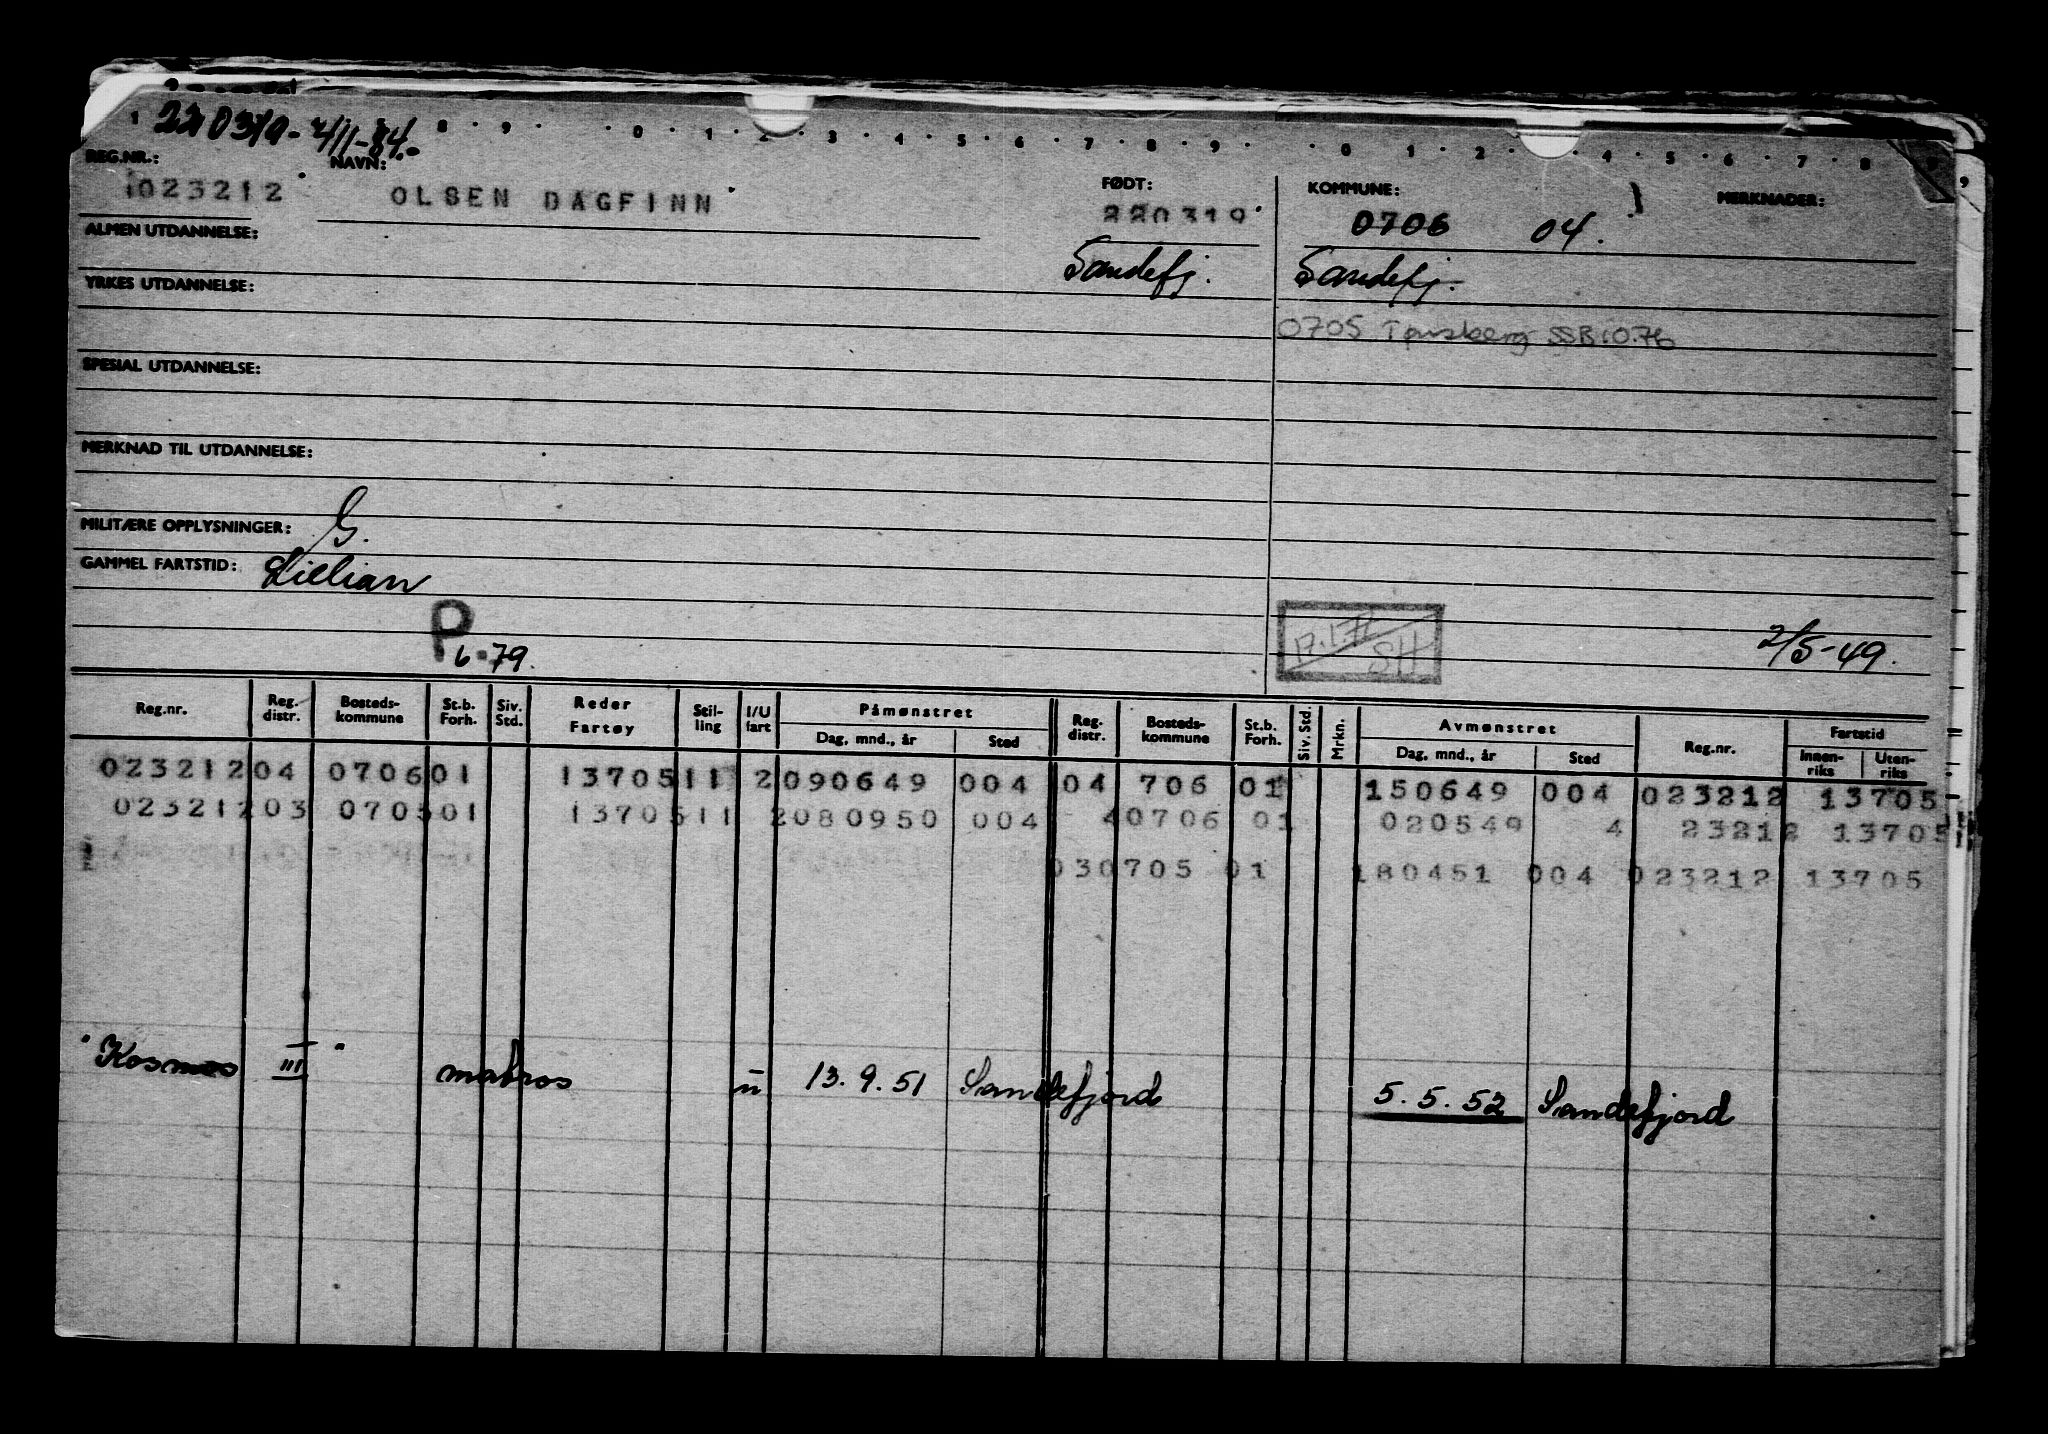 220319 - 4/11-84.-
REG.NR.: NAVN: FØDT: KOMMUNE: MERKNADER:
1023212 OLSEN DAGFINN 220319 0706 04.
ALMEN UTDANNELSE: Sandefj. Sandefj.-
YRKES UTDANNELSE:
0705 Tønsberg SSB 10.76
SPESIAL UTDANNELSE:
MERKNAD TIL UTDANNELSE:
MILITÆRE OPPLYSNINGER: G.
GAMMEL FARTSTID: Lillian
P 6-79. SH 2/5-49.
Reg.nr. Reg. distr. Bosteds-kommune St.b. Forh. Siv. Std. Reder Fartøy Stil-ling I/U fart Påmønstret Dag, mnd., år Sted Reg. distr. Bosteds-kommune St.b. Forh. Siv. Std. Mrkn. Avmønstret Dag, mnd., år Sted Reg.nr. Fartstid Innen-riks Uten-riks
023212 04 0706 01 13705 11 2 090649 004 04 706 01 150649 004 023212 13705
023212 03 0705 01 13705 11 2 080950 004 4 0706 01 020549 4 23212 13705
03 0705 01 180451 004 023212 13705
"Kosmos III" matros u 13.9.51 Sandefjord 5.5.52 Sandefjord